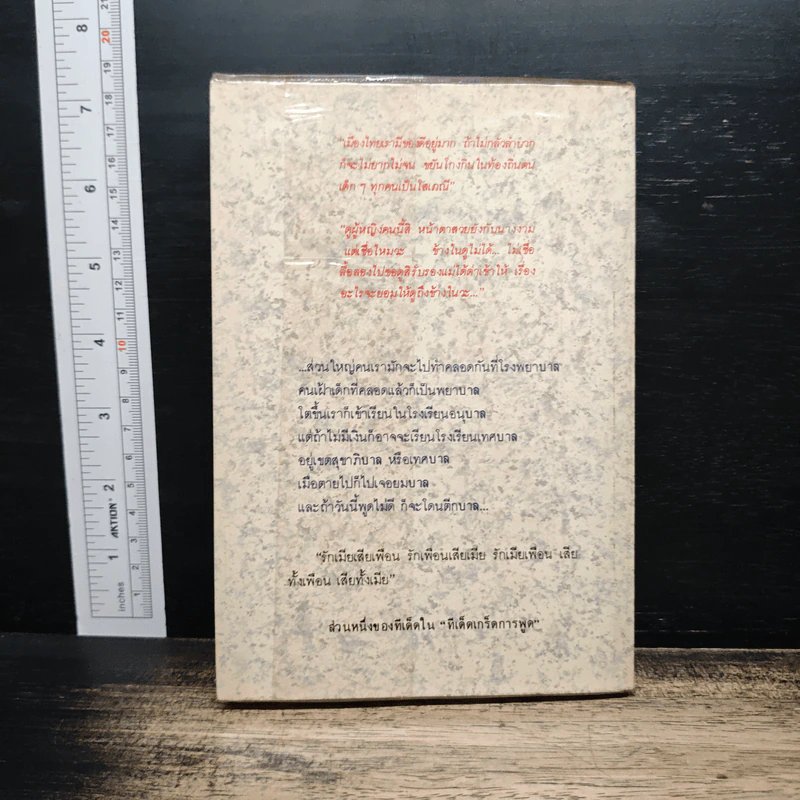 "เมืองไทยเรามีของดีอยู่มาก ถ้าไม่กลัวลำบาก
ก็จะไม่ยากไม่จน ขยันโกงกินในท้องถิ่นตน
เด็ก ๆ ทุกคนเป็นโสเภณี"
"ดูผู้หญิงคนนี้สิ หน้าตาสวยยังกับนางงาม
แต่เชื่อไหมวะ ข้างในดูไม่ได้... ไม่เชื่อ
ลื้อลองไปขอดูสิรับรองแม่ได้ด่าเช้าให้ เรื่อง
อะไรจะยอมให้ดูถึงข้างในวะ..."
...ส่วนใหญ่คนเรามักจะไปทำคลอดกันที่โรงพยาบาล
คนเฝ้าเด็กที่คลอดแล้วก็เป็นพยาบาล
โตขึ้นเราก็เข้าเรียนในโรงเรียนอนุบาล
แต่ถ้าไม่มีเงินก็อาจจะเรียนโรงเรียนเทศบาล
อยู่เขตสุขาภิบาล หรือเทศบาล
เมื่อตายไปก็ไปเจอยมบาล
และถ้าวันนี้พูดไม่ดี ก็จะโดนตึกบาล...
"รักเมียเสียเพื่อน รักเพื่อนเสียเมีย รักเมียเพื่อน เสีย
ทั้งเพื่อน เสียทั้งเมีย"
ส่วนหนึ่งของทีเด็ดใน "ทีเด็ดเกร็ดการพูด"
8
7
6
5
4
3
2
1
inches
AKTION
21
20
19
18
17
16
15
14
13
12
11
10
9
8
7
6
5
4
3
2
1